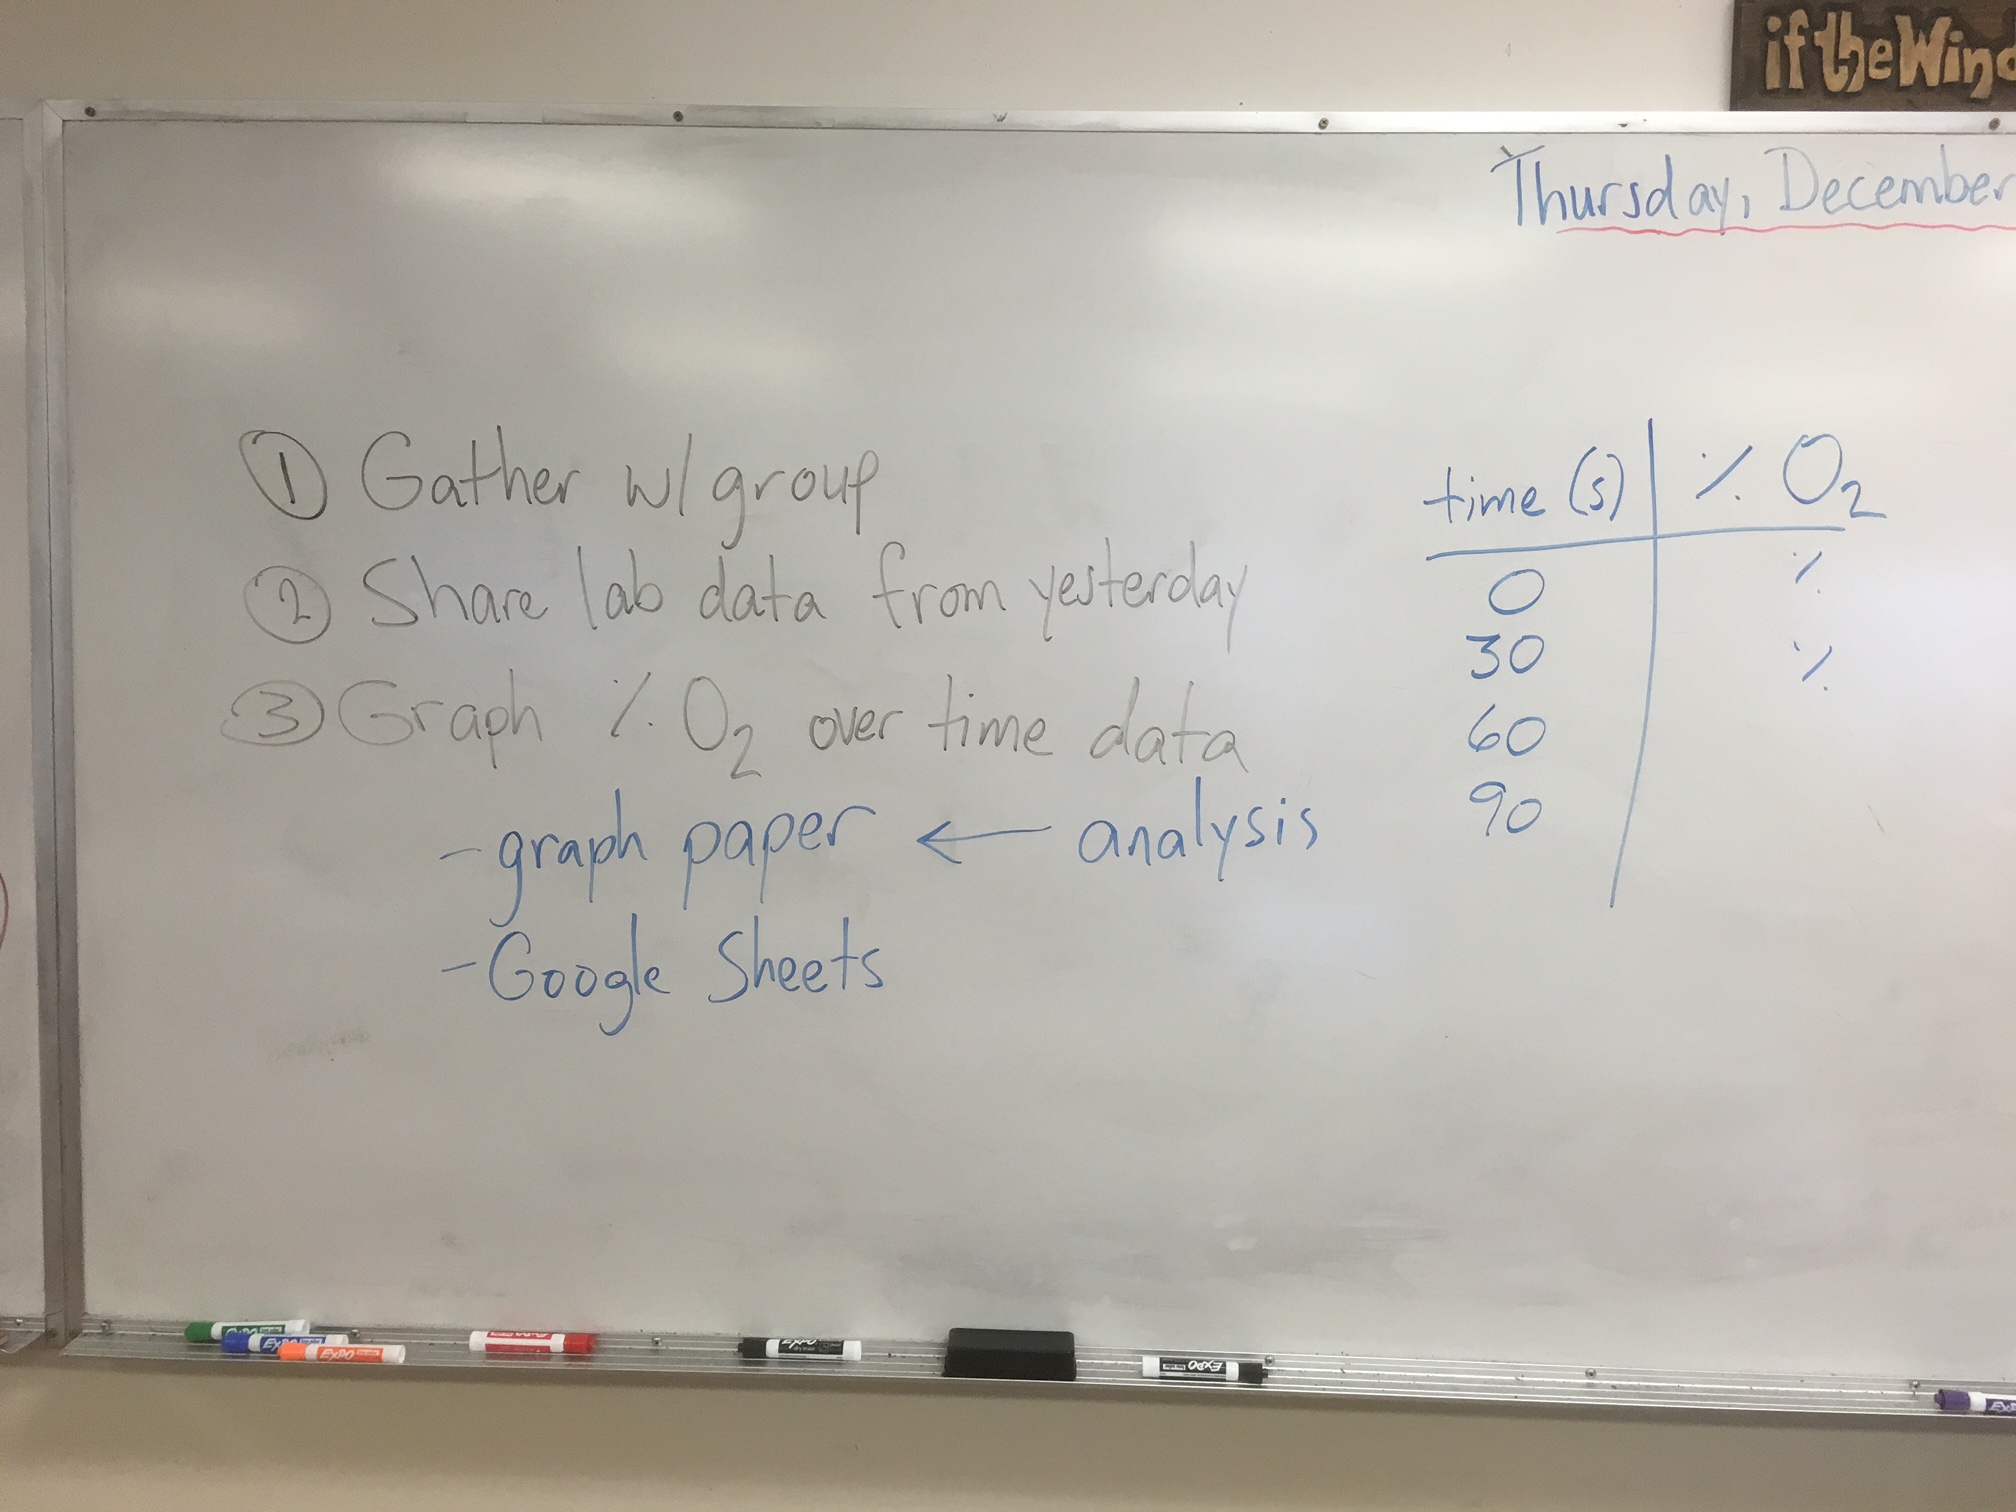 if the Wind
Thursday, December
① Gather w/ group
② Share lab data from yesterday
③ Graph % O₂ over time data
- graph paper ← analysis
- Google Sheets
time (s) | % O₂
0 %
30 %
60
90
EXPO
EXPO
EXPO
EXPO
EXPO
EXPO